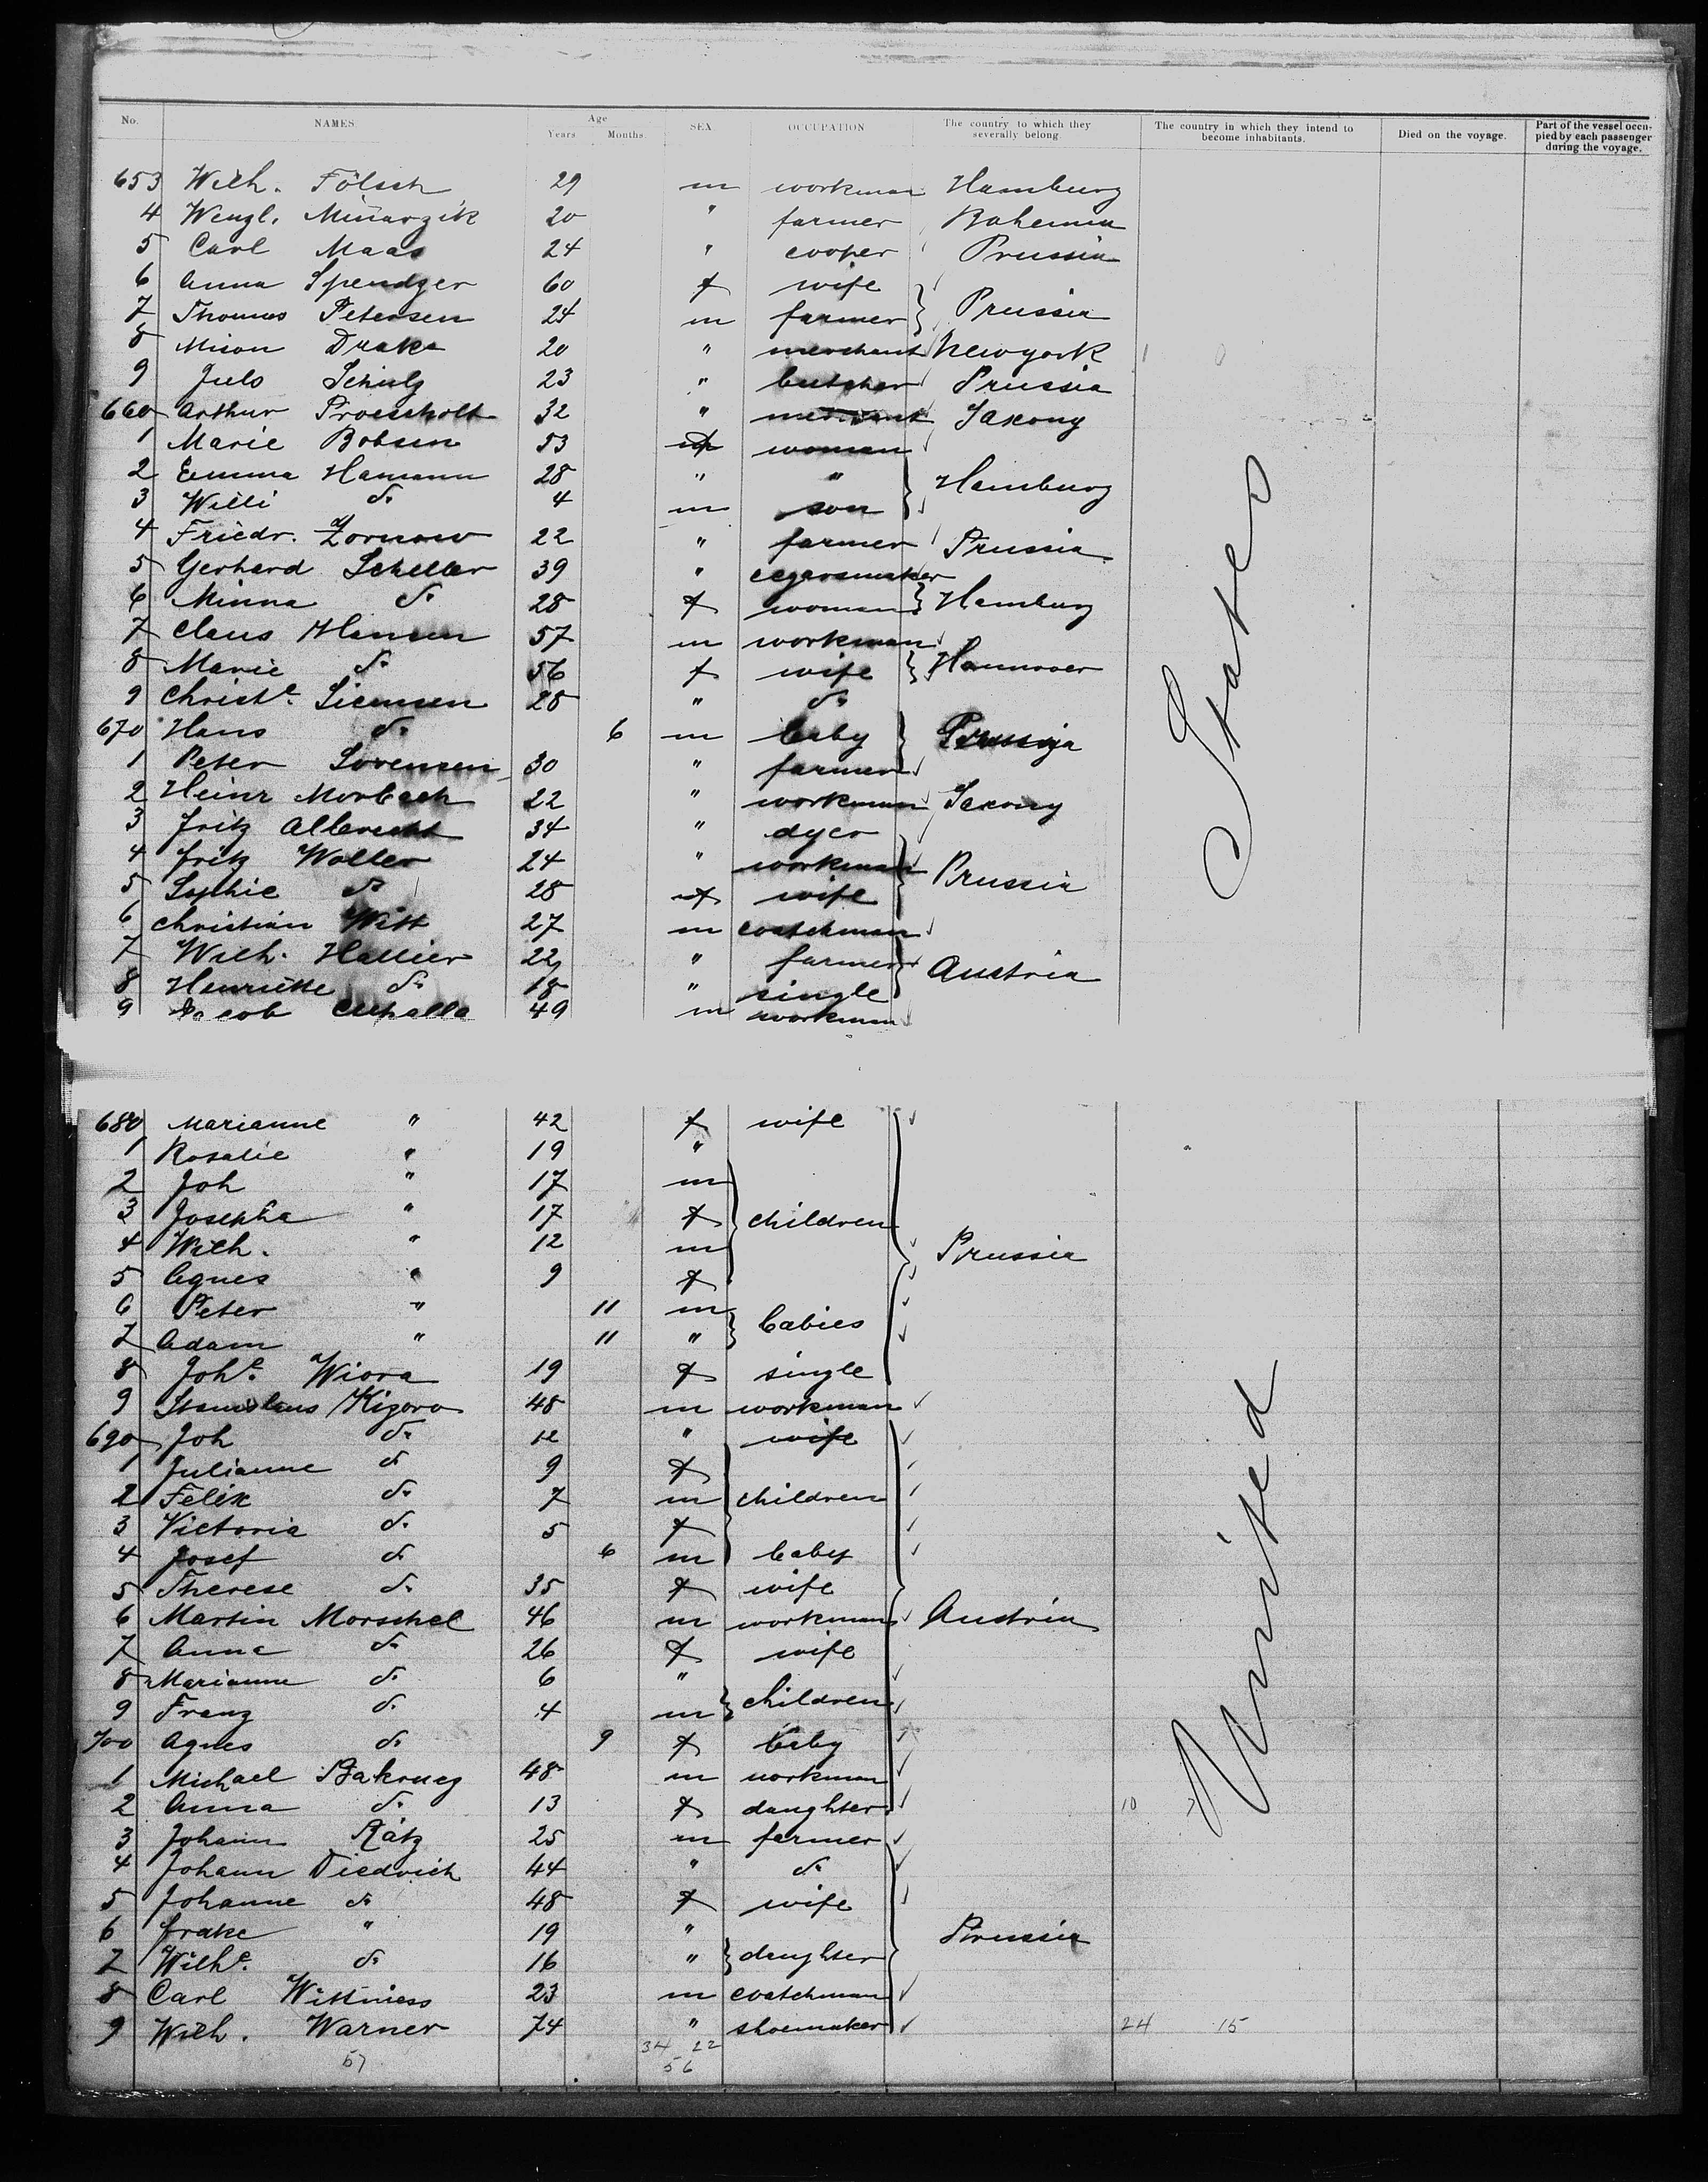 No. NAMES Age Years Months. SEX OCCUPATION The country to which they severally belong. The country in which they intend to become inhabitants. Died on the voyage. Part of the vessel occupied by each passenger during the voyage.
653 Wilh. Fölsch 29 m workman Hamburg
4 Wenzl. 20 " farmer Bohemia
5 Carl Maas 24 " cooper Prussia
6 Anna Spendger 60 f wife
7 Thomas Petersen 24 m farmer } Prussia
8 Drake 20 " merchant Newyork
9 Juls Schulz 23 " butcher Prussia
660 Arthur Proescholt 32 " merchant Saxony
1 Marie Bobsen 53 f woman
2 Emma Hamann 28 " " } Hamburg
3 Willi do 4 m son
4 Friedr. Zornow 22 " farmer Prussia
5 Gerhard Scheller 39 " cegarsmaker
6 Minna do 28 f woman } Hamburg
7 Claus Hansen 57 m workman
8 Marie do 56 f wife } Hannover
9 Christe. Siemsen 28 " do
670 Hans do 6 m baby } Prussia
1 Peter Sorensen 30 " farmer
2 Heinr Morbach 22 " workman Saxony
3 Fritz Albrecht 34 " dyer
4 Fritz Wolter 24 " workman } Prussia
5 Sophie do 28 f wife
6 Christian Witt 27 m coatchman
7 Wilh. Hallier 22 " farmer } Austria
8 Henriette do 18 " single
9 Jacob Cuhalla 49 m workman
680 Marianne " 42 f wife
1 Rosalie " 19 "
2 Joh " 17 m
3 Josepha " 17 f } children
4 Wilh. " 12 m Prussia
5 Agnes " 9 f
6 Peter " 11 m } babies
7 Adam " 11 "
8 Johe. Wiora 19 f single
9 Stanislaus Kigora 48 m workman
690 Joh do 12 " wife
1 Julianne do 9 f
2 Felix do 7 m children
3 Victoria do 5 f
4 Josef do 6 m baby
5 Therese do 35 f wife
6 Martin Morschel 46 m workman Austria
7 Anna do 26 f wife
8 Marianne do 6 "
9 Franz do 4 m } children
700 Agnes do 9 f baby
1 Michael 48 m workman
2 Anna do 13 f daughter 10 7
3 Johann Rätz 25 m farmer
4 Johann Diedrich 44 " do
5 Johanne do 48 f wife
6 Frake " 19 " Prussia
7 Wilhe. do 16 " } daughter
8 Carl Wittniess 23 m coatchman
9 Wilh. Warner 74 " shoemaker 24 15
57 34 22
56
United States